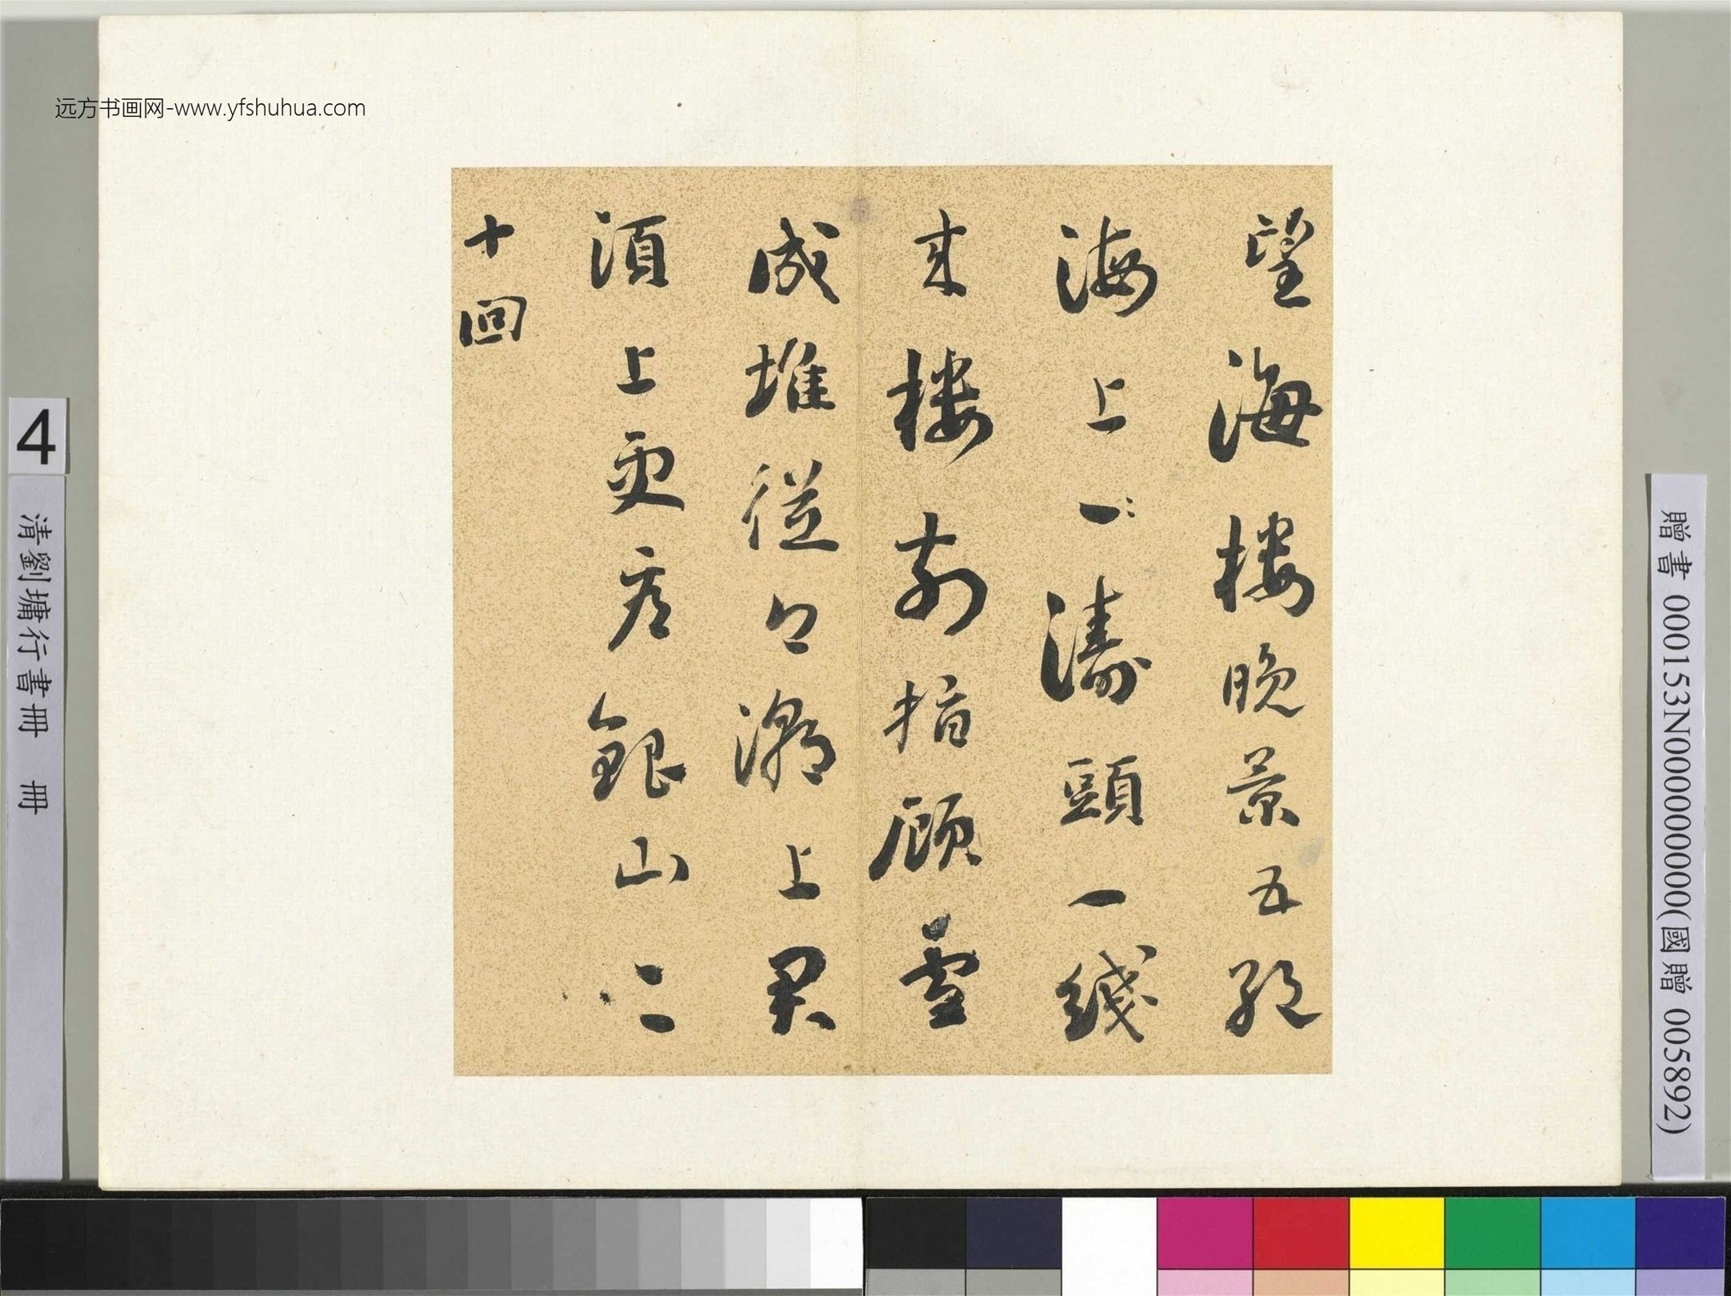 远方书画网-www.yfshuhua.com
望海樓晚景五絶
海上一濤頭一綫
来樓前指顧雪
成堆從今潮上君
須上更看銀山二
十回
4
清劉墉行書冊 冊
贈書 000153N000000000(國贈 005892)